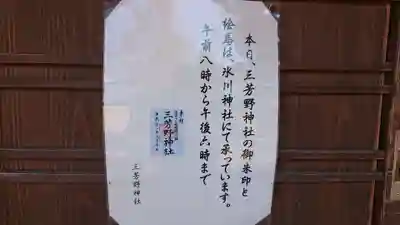 本日、三芳野神社の御朱印と
絵馬は、氷川神社にて承っています。
午前八時から午後六時まで
三芳野神社
三芳野神社